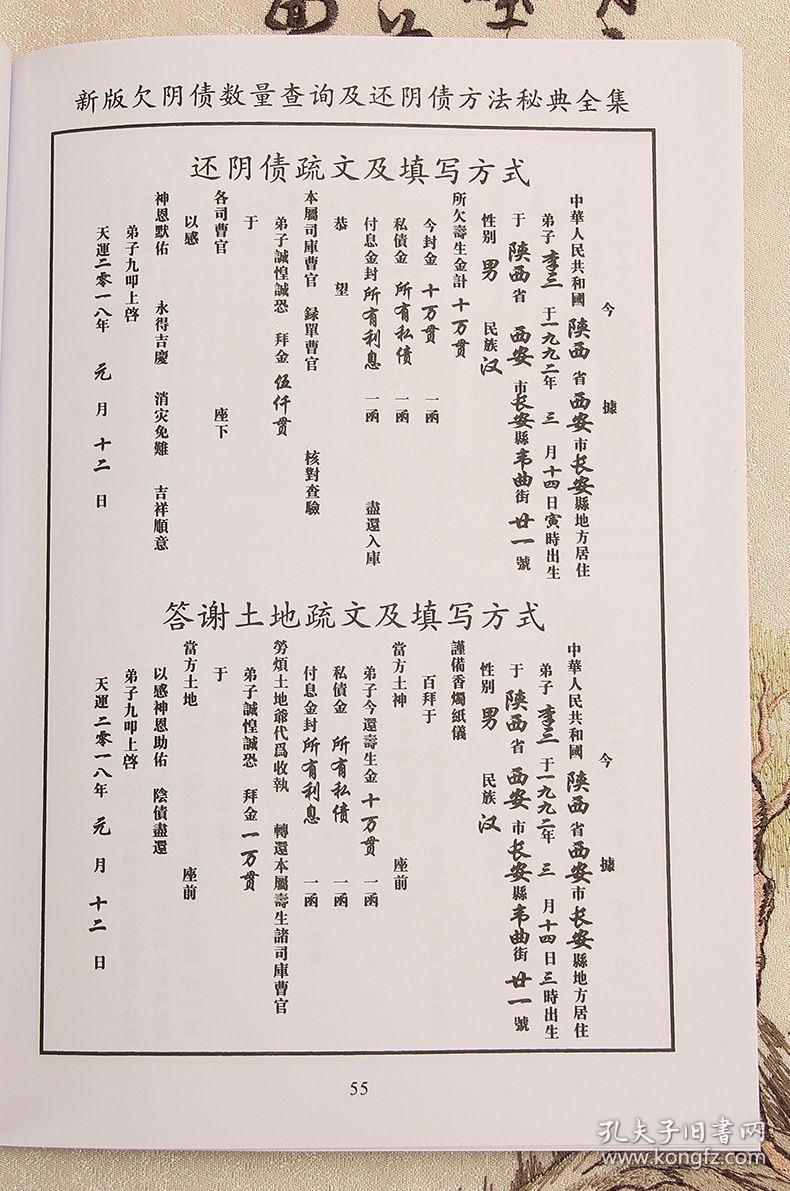 新版欠阴债数量查询及还阴债方法秘典全集
还阴债疏文及填写方式
今 據
中華人民共和國 陕西 省 西安 市 长安 縣地方居住
弟子 李三 于一九九二年 三 月十四日寅時出生
于 陕西 省 西安 市 长安 縣 韦曲 街 廿一 號
性别 男 民族 汉
所欠壽生金計 十万贯
今封金 十万贯 一函
私債金 所有私债 一函
付息金封 所有利息 一函 盡還入庫
恭 望
本屬司庫曹官 録單曹官 核對查驗
弟子誠惶誠恐 拜金 伍仟贯
于
各司曹官 座下
以感
神恩默佑 永得吉慶 消灾免難 吉祥順意
弟子九叩上啓
天運二零一八年 元 月 十二 日
答谢土地疏文及填写方式
今 據
中華人民共和國 陕西 省 西安 市 长安 縣地方居住
弟子 李三 于一九九二年 三 月十四日三時出生
于 陕西 省 西安 市 长安 縣 韦曲 街 廿一 號
性别 男 民族 汉
謹備香燭紙儀
百拜于
當方土神 座前
弟子今還壽生金 十万贯 一函
私債金 所有私债 一函
付息金封 所有利息 一函
勞煩土地爺代爲收執 轉還本屬壽生諸司庫曹官
弟子誠惶誠恐 拜金 一万贯
于
當方土地 座前
以感神恩助佑 陰債盡還
弟子九叩上啓
天運二零一八年 元 月 十二 日
55
孔夫子旧书网
www.kongfz.com